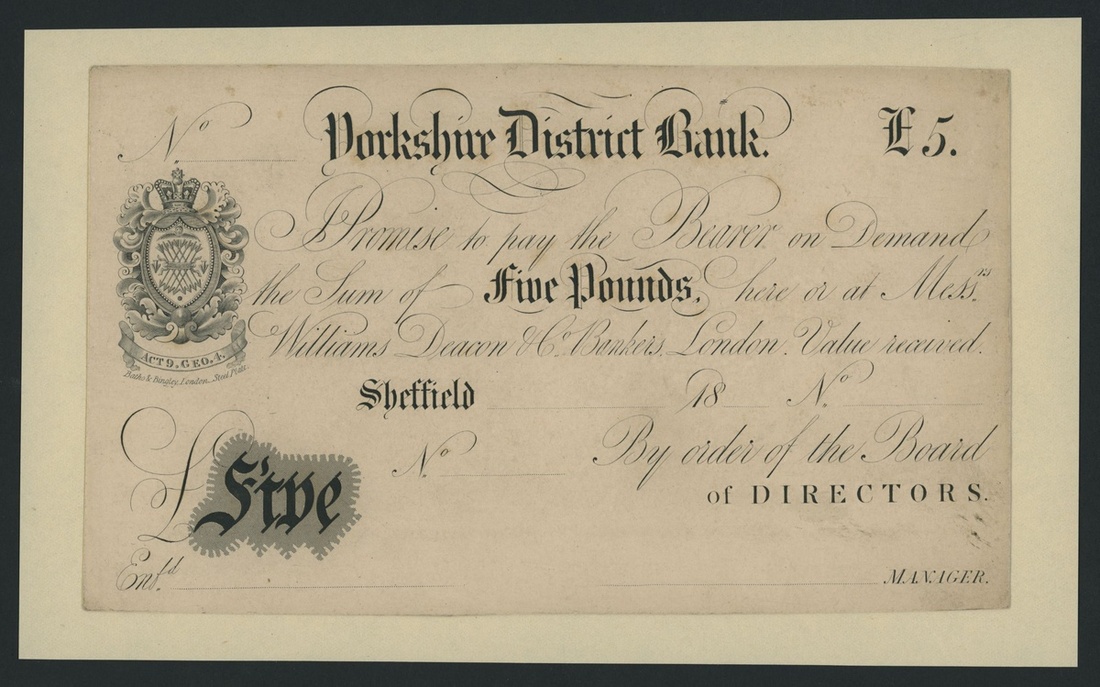 No.
Yorkshire District Bank.
£5.
I Promise to pay the Bearer on Demand
the Sum of Five Pounds, here or at Messrs.
Williams Deacon & Co. Bankers, London. Value received.
ACT 9. GEO. 4.
Baths & Dingley, London. Steel Plate
Sheffield 18 No.
No.
By order of the Board
of DIRECTORS.
£ Five
Entd.
MANAGER.